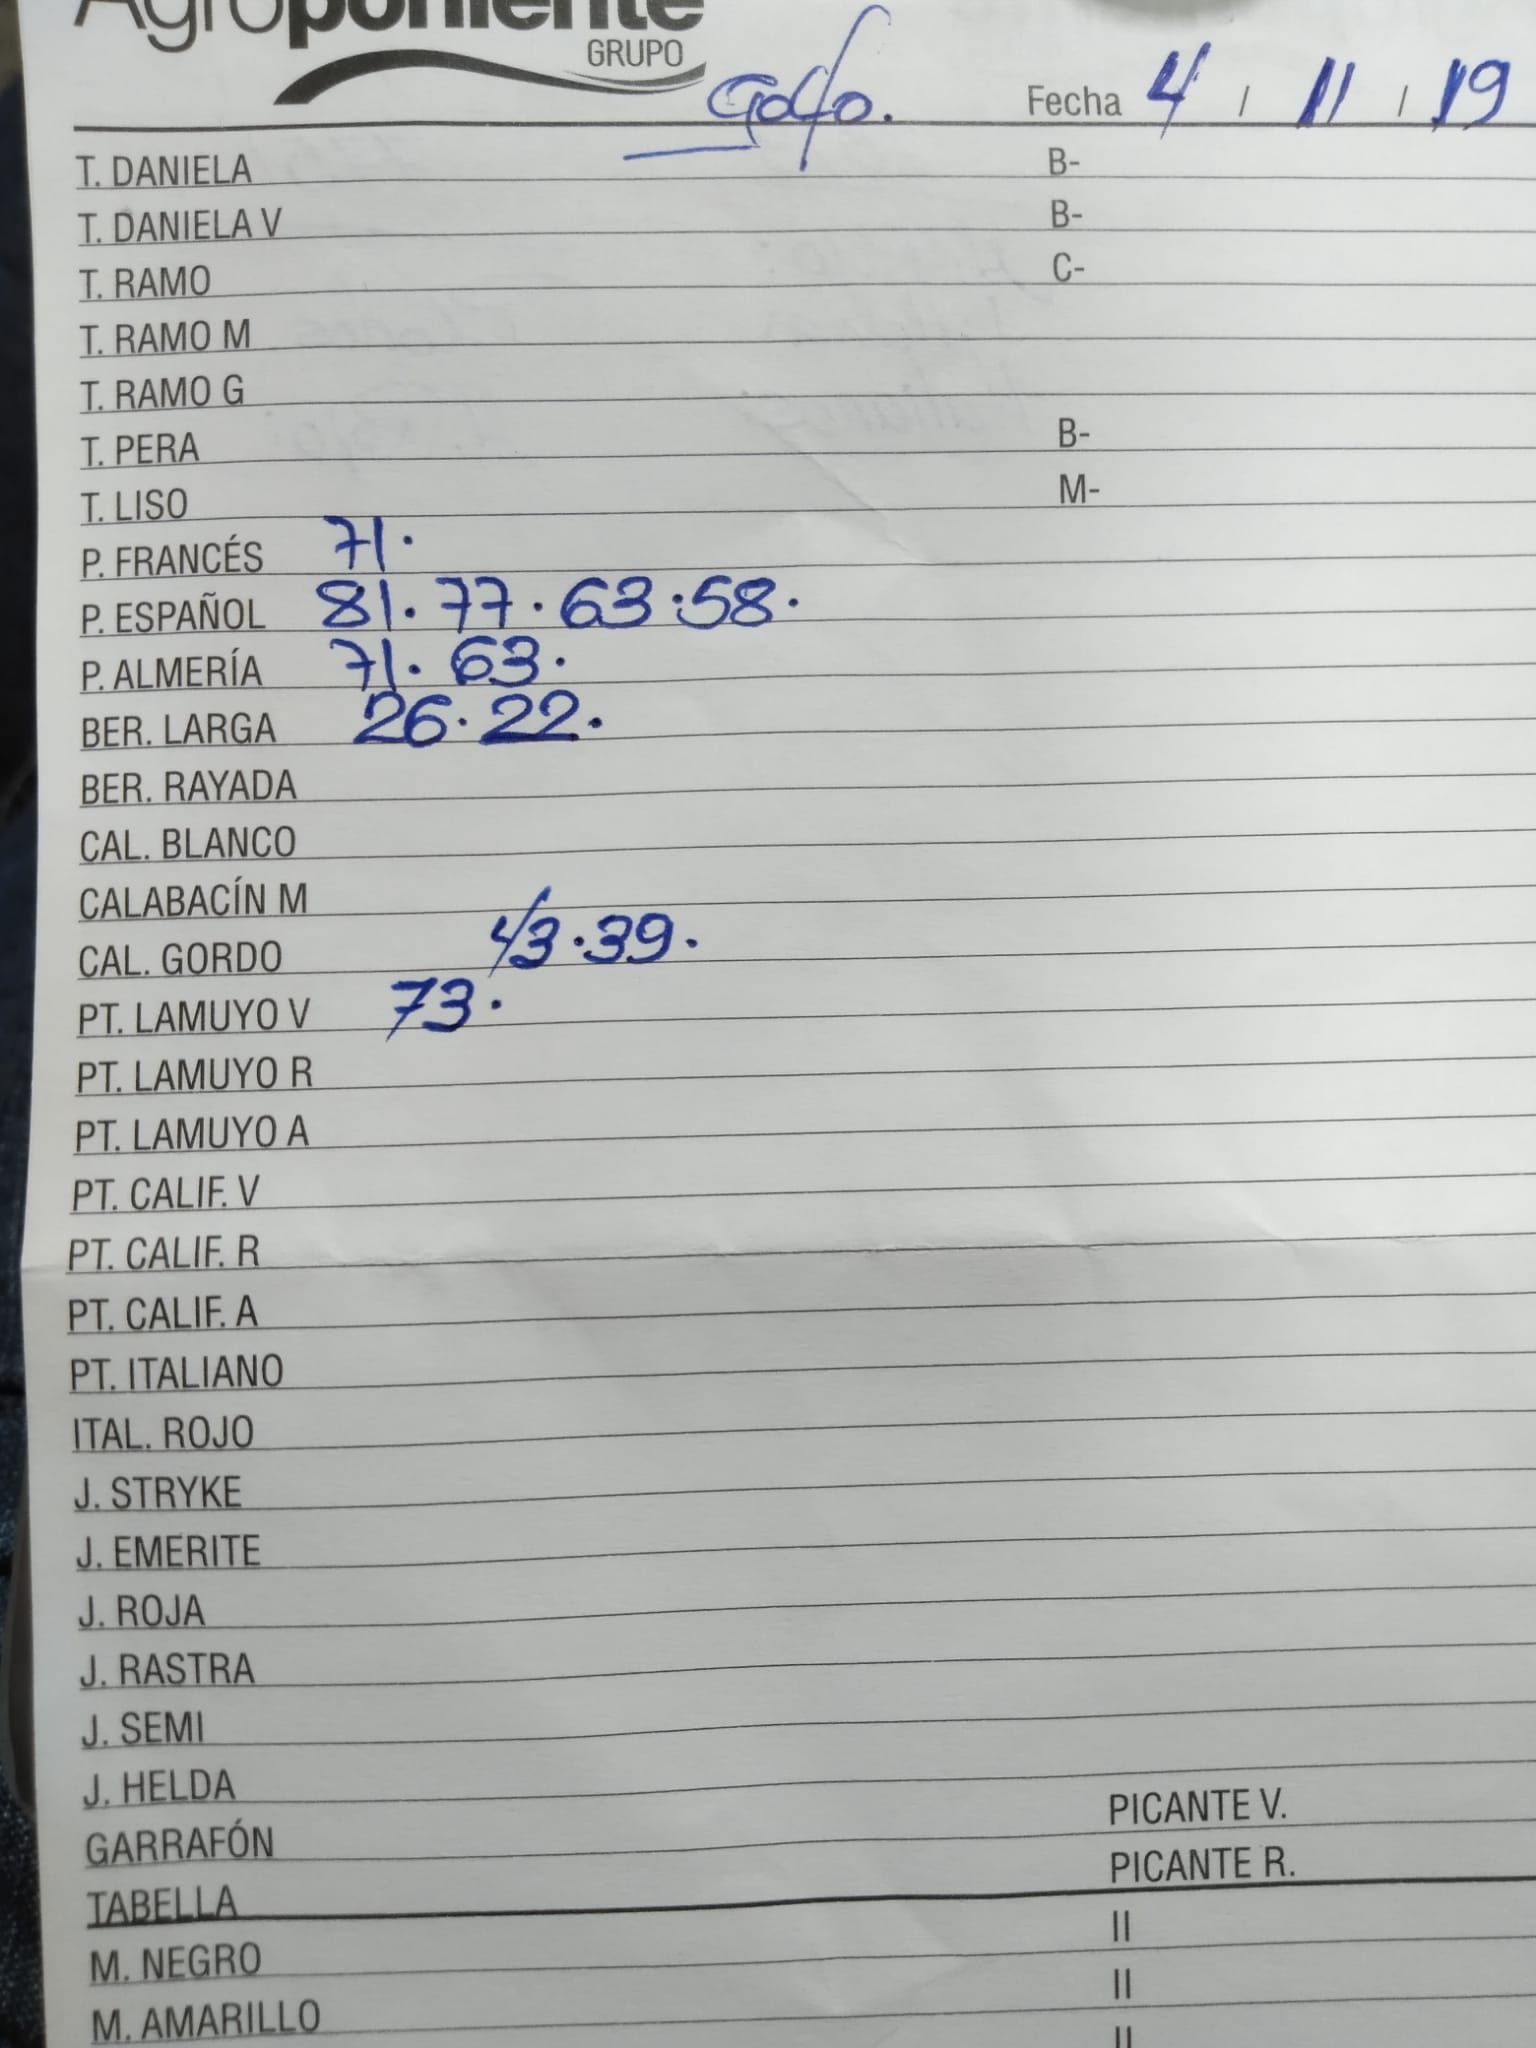 Agroponiente
GRUPO
Golfo. Fecha 4 / 11 / 19
T. DANIELA B-
T. DANIELA V B-
T. RAMO C-
T. RAMO M
T. RAMO G
T. PERA B-
T. LISO M-
P. FRANCÉS 71.
P. ESPAÑOL 81. 77. 63. 58.
P. ALMERÍA 71. 63.
BER. LARGA 26. 22.
BER. RAYADA
CAL. BLANCO
CALABACÍN M
CAL. GORDO 43. 39.
PT. LAMUYO V 73.
PT. LAMUYO R
PT. LAMUYO A
PT. CALIF. V
PT. CALIF. R
PT. CALIF. A
PT. ITALIANO
ITAL. ROJO
J. STRYKE
J. EMERITE
J. ROJA
J. RASTRA
J. SEMI
J. HELDA
GARRAFÓN PICANTE V.
TABELLA PICANTE R.
M. NEGRO II
M. AMARILLO II
II